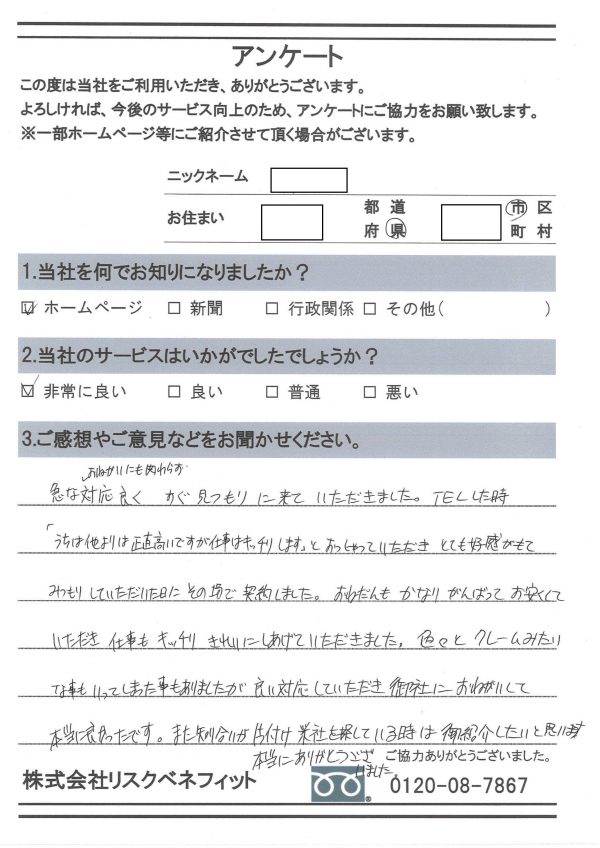 アンケート
この度は当社をご利用いただき、ありがとうございます。
よろしければ、今後のサービス向上のため、アンケートにご協力をお願い致します。
※一部ホームページ等にご紹介させて頂く場合がございます。
ニックネーム
お住まい 都 道 府 県 市 区 町 村
1.当社を何でお知りになりましたか？
☑ ホームページ □ 新聞 □ 行政関係 □ その他( )
2.当社のサービスはいかがでしたでしょうか？
☑ 非常に良い □ 良い □ 普通 □ 悪い
3.ご感想やご意見などをお聞かせください。
おねがいにも関わらず
急な対応良く すぐ見つもりに来ていただきました。TELした時
「うちは他よりは正直高いですが仕事はキッチリします」とおっしゃっていただき とても好感がもて
みつもりしていただいた日にその場で契約しました。おねだんもかなりがんばってお安くして
いただき 仕事もキッチリきれいにしあげていただきました。色々とクレームみたい
な事もいってしまった事もありましたが良い対応していただき御社におねがいして
本当に良かったです。また知り合いが片付け業社を探している時は御紹介したいと思います
本当にありがとうござ
いました。
ご協力ありがとうございました。
株式会社リスクベネフィット 0120-08-7867